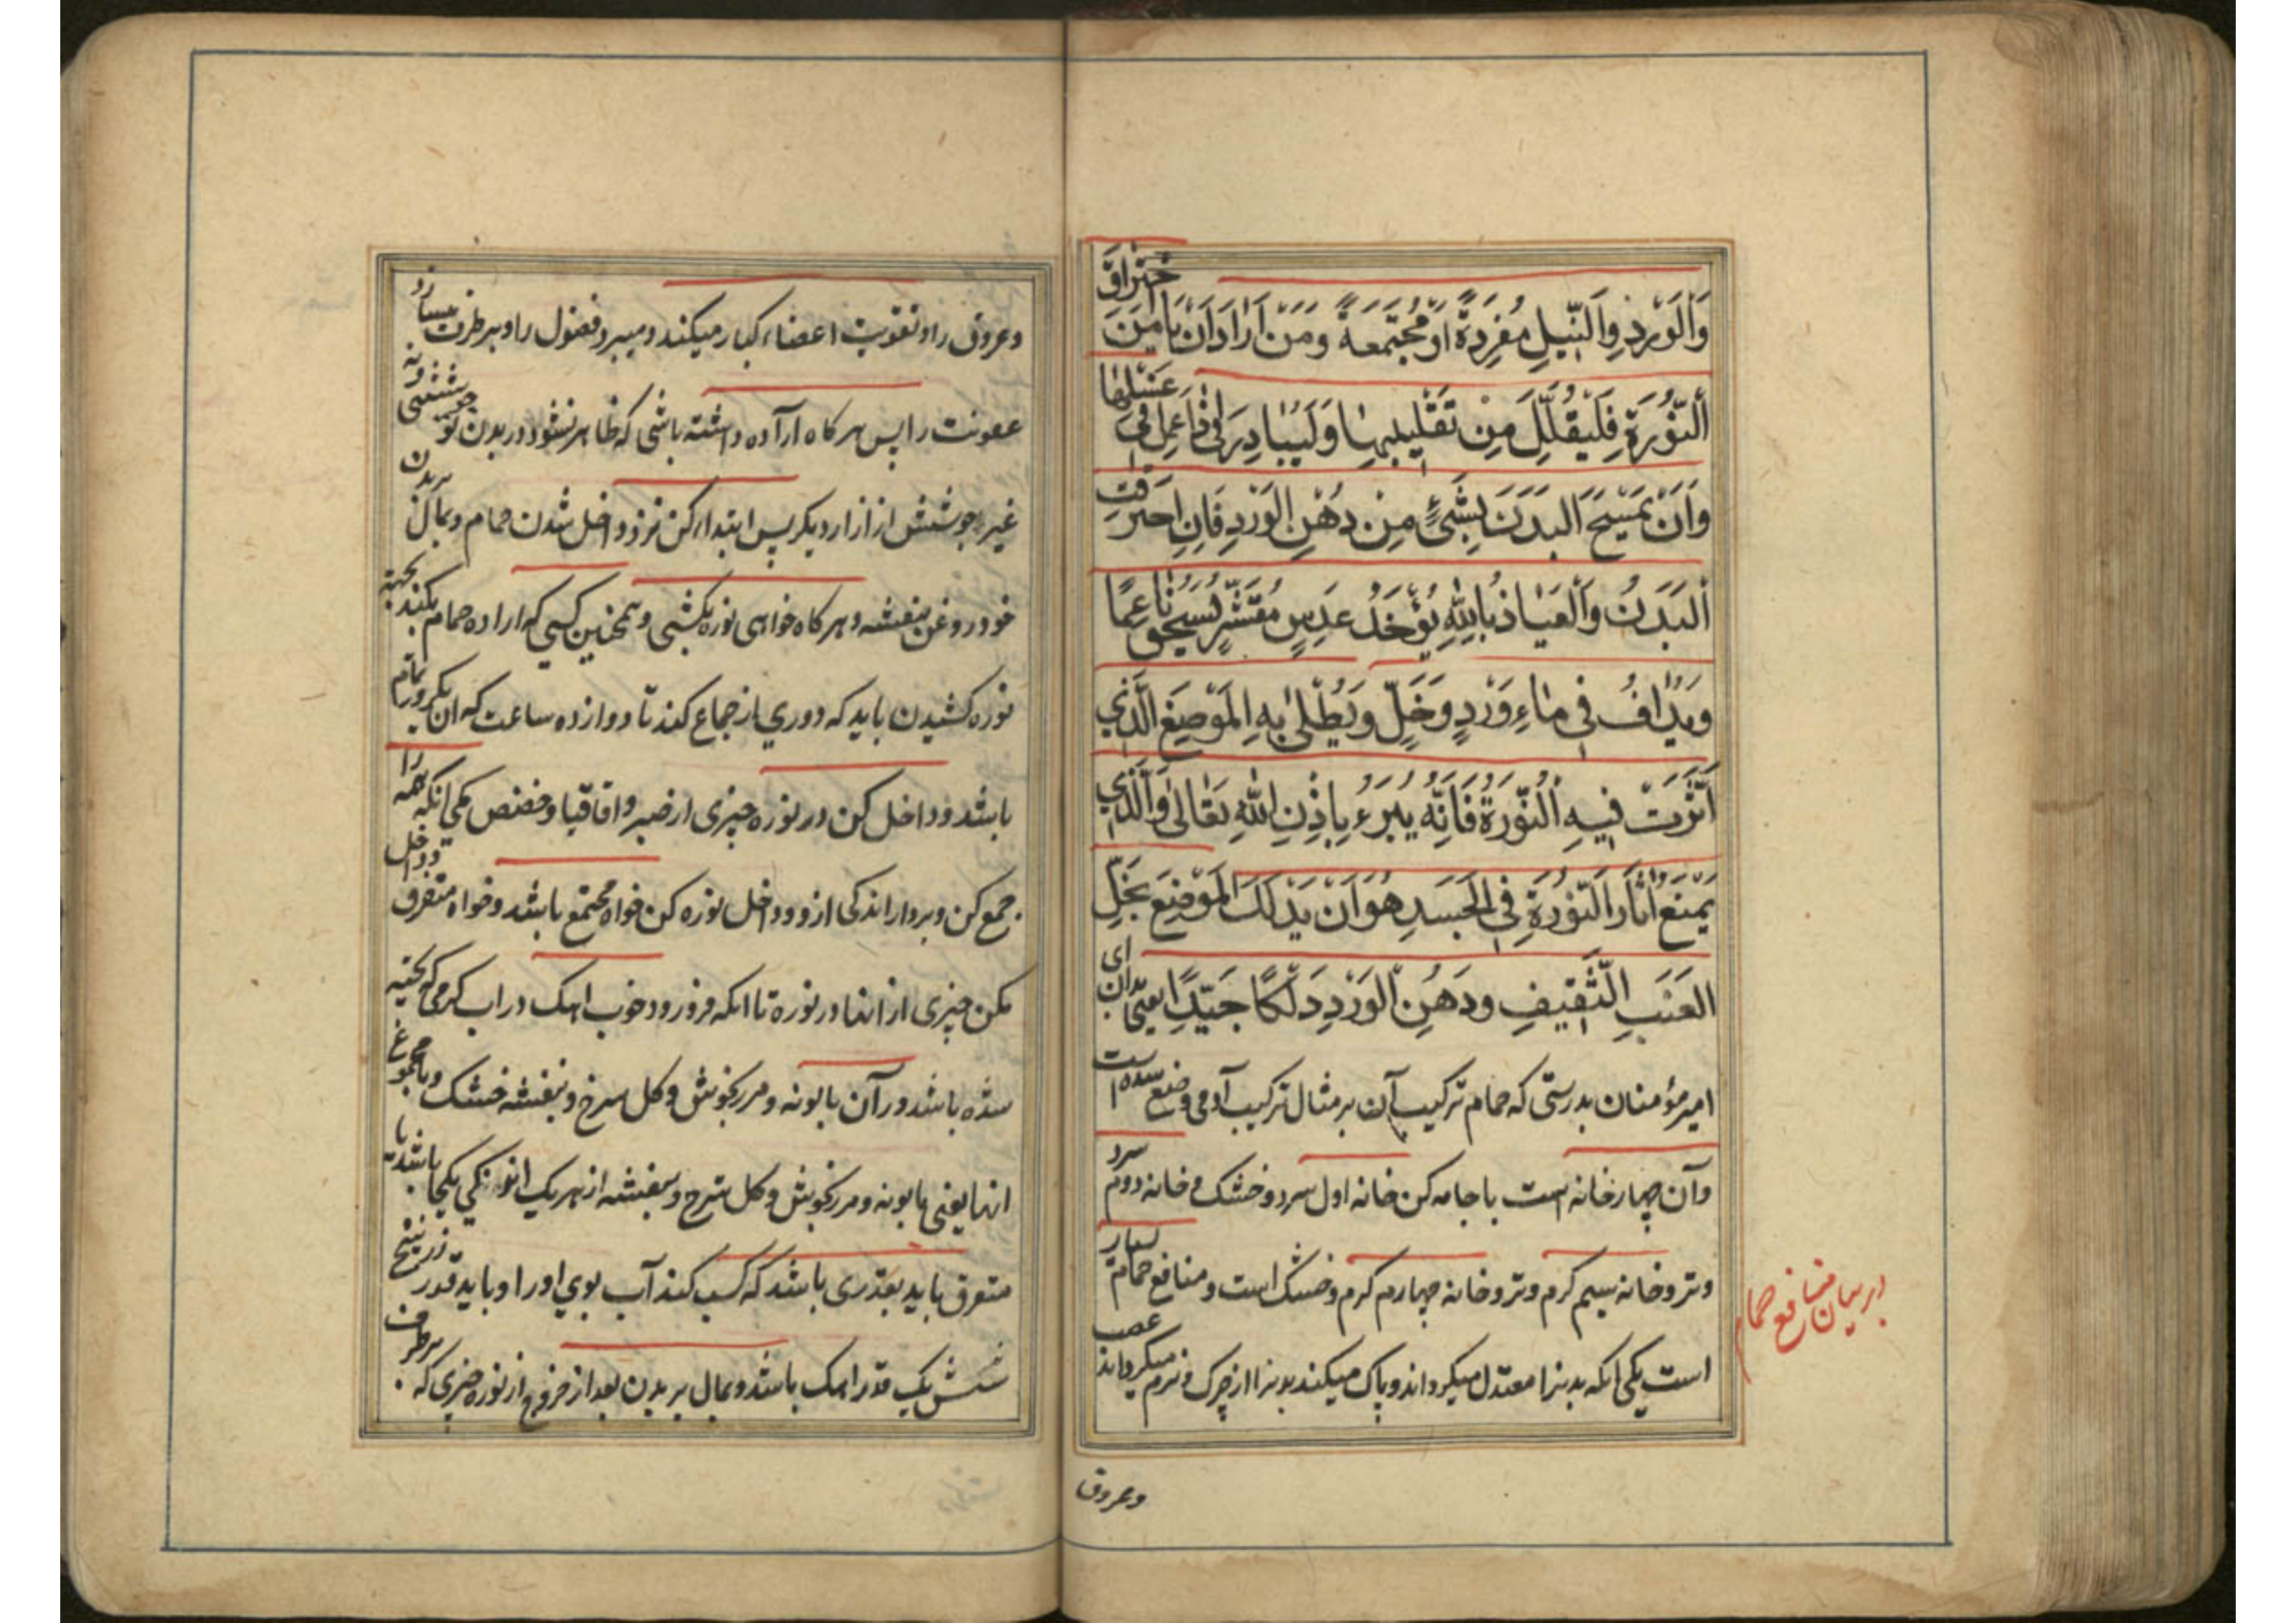 وَالْوَرْدِ وَالنِّيلِ مُفْرَدَةً اَوْ مُجْتَمِعَةً وَمَنْ اَرَادَ اَنْ يَامَنَ احْتِرَاقَ
النُّورَةِ فَلْيُقَلِّلْ مِنْ تَقْلِيبِهَا وَلْيُبَادِرْ اِذَا عَمِلَ فِي غَسْلِهَا
وَاَنْ يَمْسَحَ الْبَدَنَ بِشَيْءٍ مِنْ دُهْنِ الْوَرْدِ فَاِنِ احْتَرَقَتِ
الْبَدَنُ وَالْعِيَاذُ بِاللّٰهِ يُؤْخَذُ عَدَسٌ مُقَشَّرٌ يُسْحَقُ نَاعِمًا
وَيُدَافُ فِي مَاءِ وَرْدٍ وَخَلٍّ وَيُطْلٰى بِهِ الْمَوْضِعُ الَّذِي
اَثَّرَتْ فِيهِ النُّورَةُ فَاِنَّهُ يُبْرَءُ بِاِذْنِ اللّٰهِ تَعَالٰى وَالَّذِي
يَمْنَعُ اٰثَارَ النُّورَةِ فِي الْجَسَدِ هُوَ اَنْ يَدْلُكَ الْمَوْضِعَ بِخَلِّ
الْعِنَبِ الثَّقِيفِ وَدُهْنِ الْوَرْدِ دَلْكًا جَيِّدًا يعنى بدان اى
امير مؤمنان بدرستى كه حمام تركيب آن بر مثال تركيب آدمى وضع شده است
وآن چهار خانه است با جامه كن خانه اول سرد و خشك و خانه دوم سرد
وتر و خانه سيم كرم وتر و خانه چهارم كرم و خشك است و منافع حمام بسيار
است يكى انكه بدنرا معتدل ميكرداند و پاك ميكند بدنرا از چرك و نرم ميكرداند عصب
در بيان منافع حمام
وعروق
وعروق را و تقويت اعضاء كبار ميكند و ميبرد فضول را و برطرف ميسازد
عفونت را پس هركاه اراده داشته باشى كه ظاهر نشود در بدن تو جوششى ونه
غير جوشش از ازار ديكر پس ابتدا كن نزد داخل شدن حمام و بمال بر بدن
خود روغن بنفشه و هركاه خواهى نوره بكشى و همچنين كسى كه اراده حمام بكند بجهة
نوره كشيدن بايد كه دورى از جماع كند تا دوازده ساعت كه ان يكروز تمام
باشد و داخل كن در نوره چيزى از صبر و اقاقيا و حضض مكى انكه همه را
جمع كن و بردار اندكى ازو و داخل نوره كن خواه مجتمع باشد و خواه متفرق و داخل
مكن چيزى از انها در نوره تا انكه فرو رود خوب اهك در اب كرمى كه پخته
شده باشد در آن بابونه و مرزنجوش و كل سرخ و بنفشه خشك و يا مجموع
انها يعنى بابونه و مرزنجوش و كل سرخ و بنفشه از هر يك اندكى يكجا باشد يا
متفرق بايد بقدرى باشد كه كسب كند آب بوى او را و بايد قدر زرنيخ
شش يك قدر اهك باشد و بمال بر بدن بعد از خروج از نوره چيزى كه برطرف